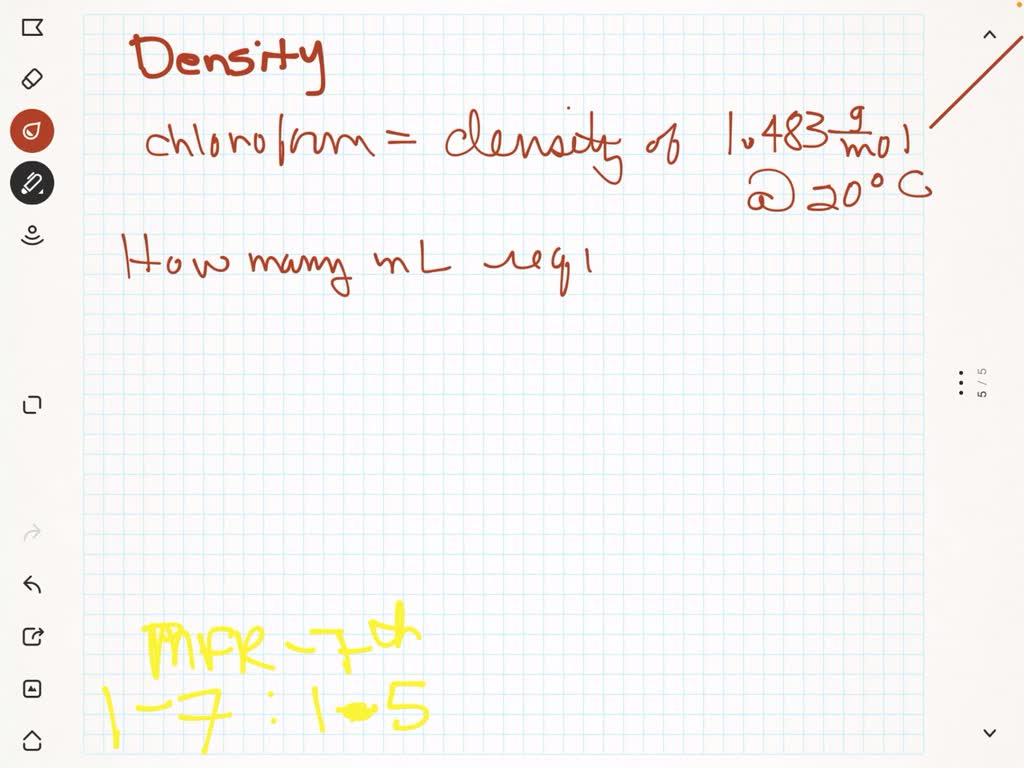 Density
chloroform = density of 1.483 g/mol
@ 20°C
How many mL requ
5 / 5
MFR - 7th
1-7 : 1-5